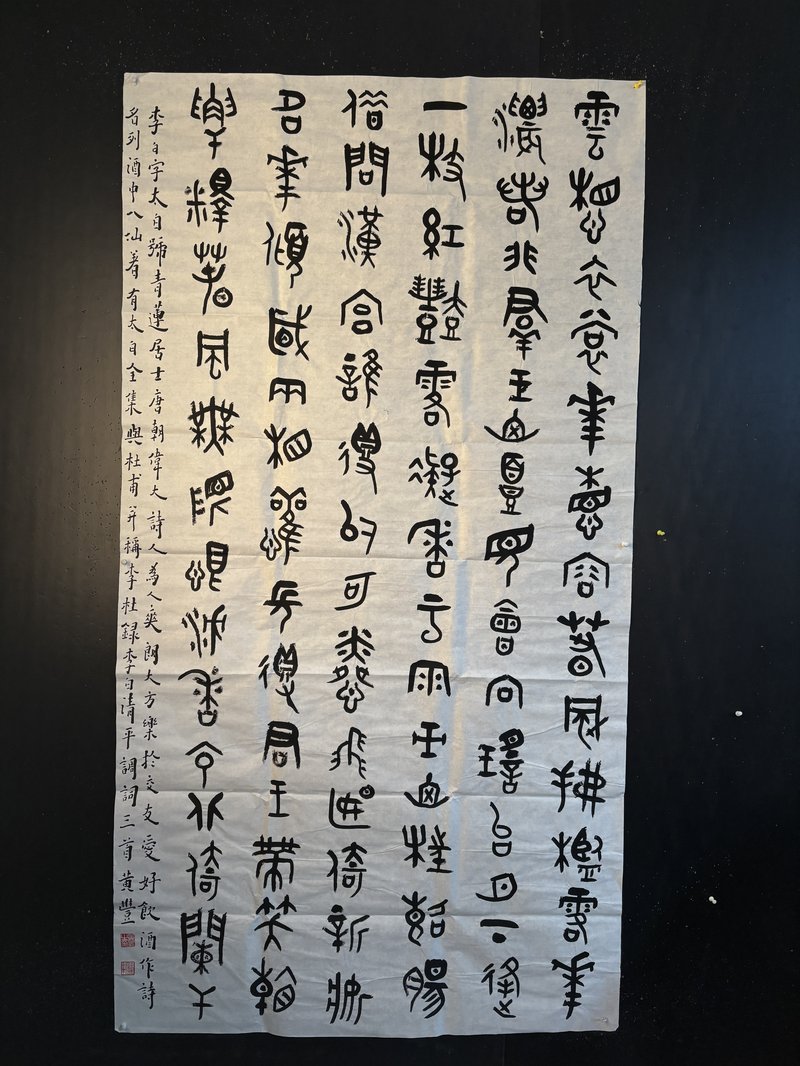 雲想衣裳華想容春風拂檻露華
濃若非群玉山頭見會向瑤台月下逢
一枝紅豔露凝香雲雨巫山枉斷腸
借問漢宮誰得似可憐飛燕倚新妝
名華傾國兩相歡長得君王帶笑看
解釋春風無限恨沈香亭北倚闌干
李白字太白號青蓮居士唐朝偉大詩人為人爽朗大方樂於交友愛好飲酒作詩
名列酒中八仙著有太白全集與杜甫并稱李杜錄李白清平調詞三首黃豐